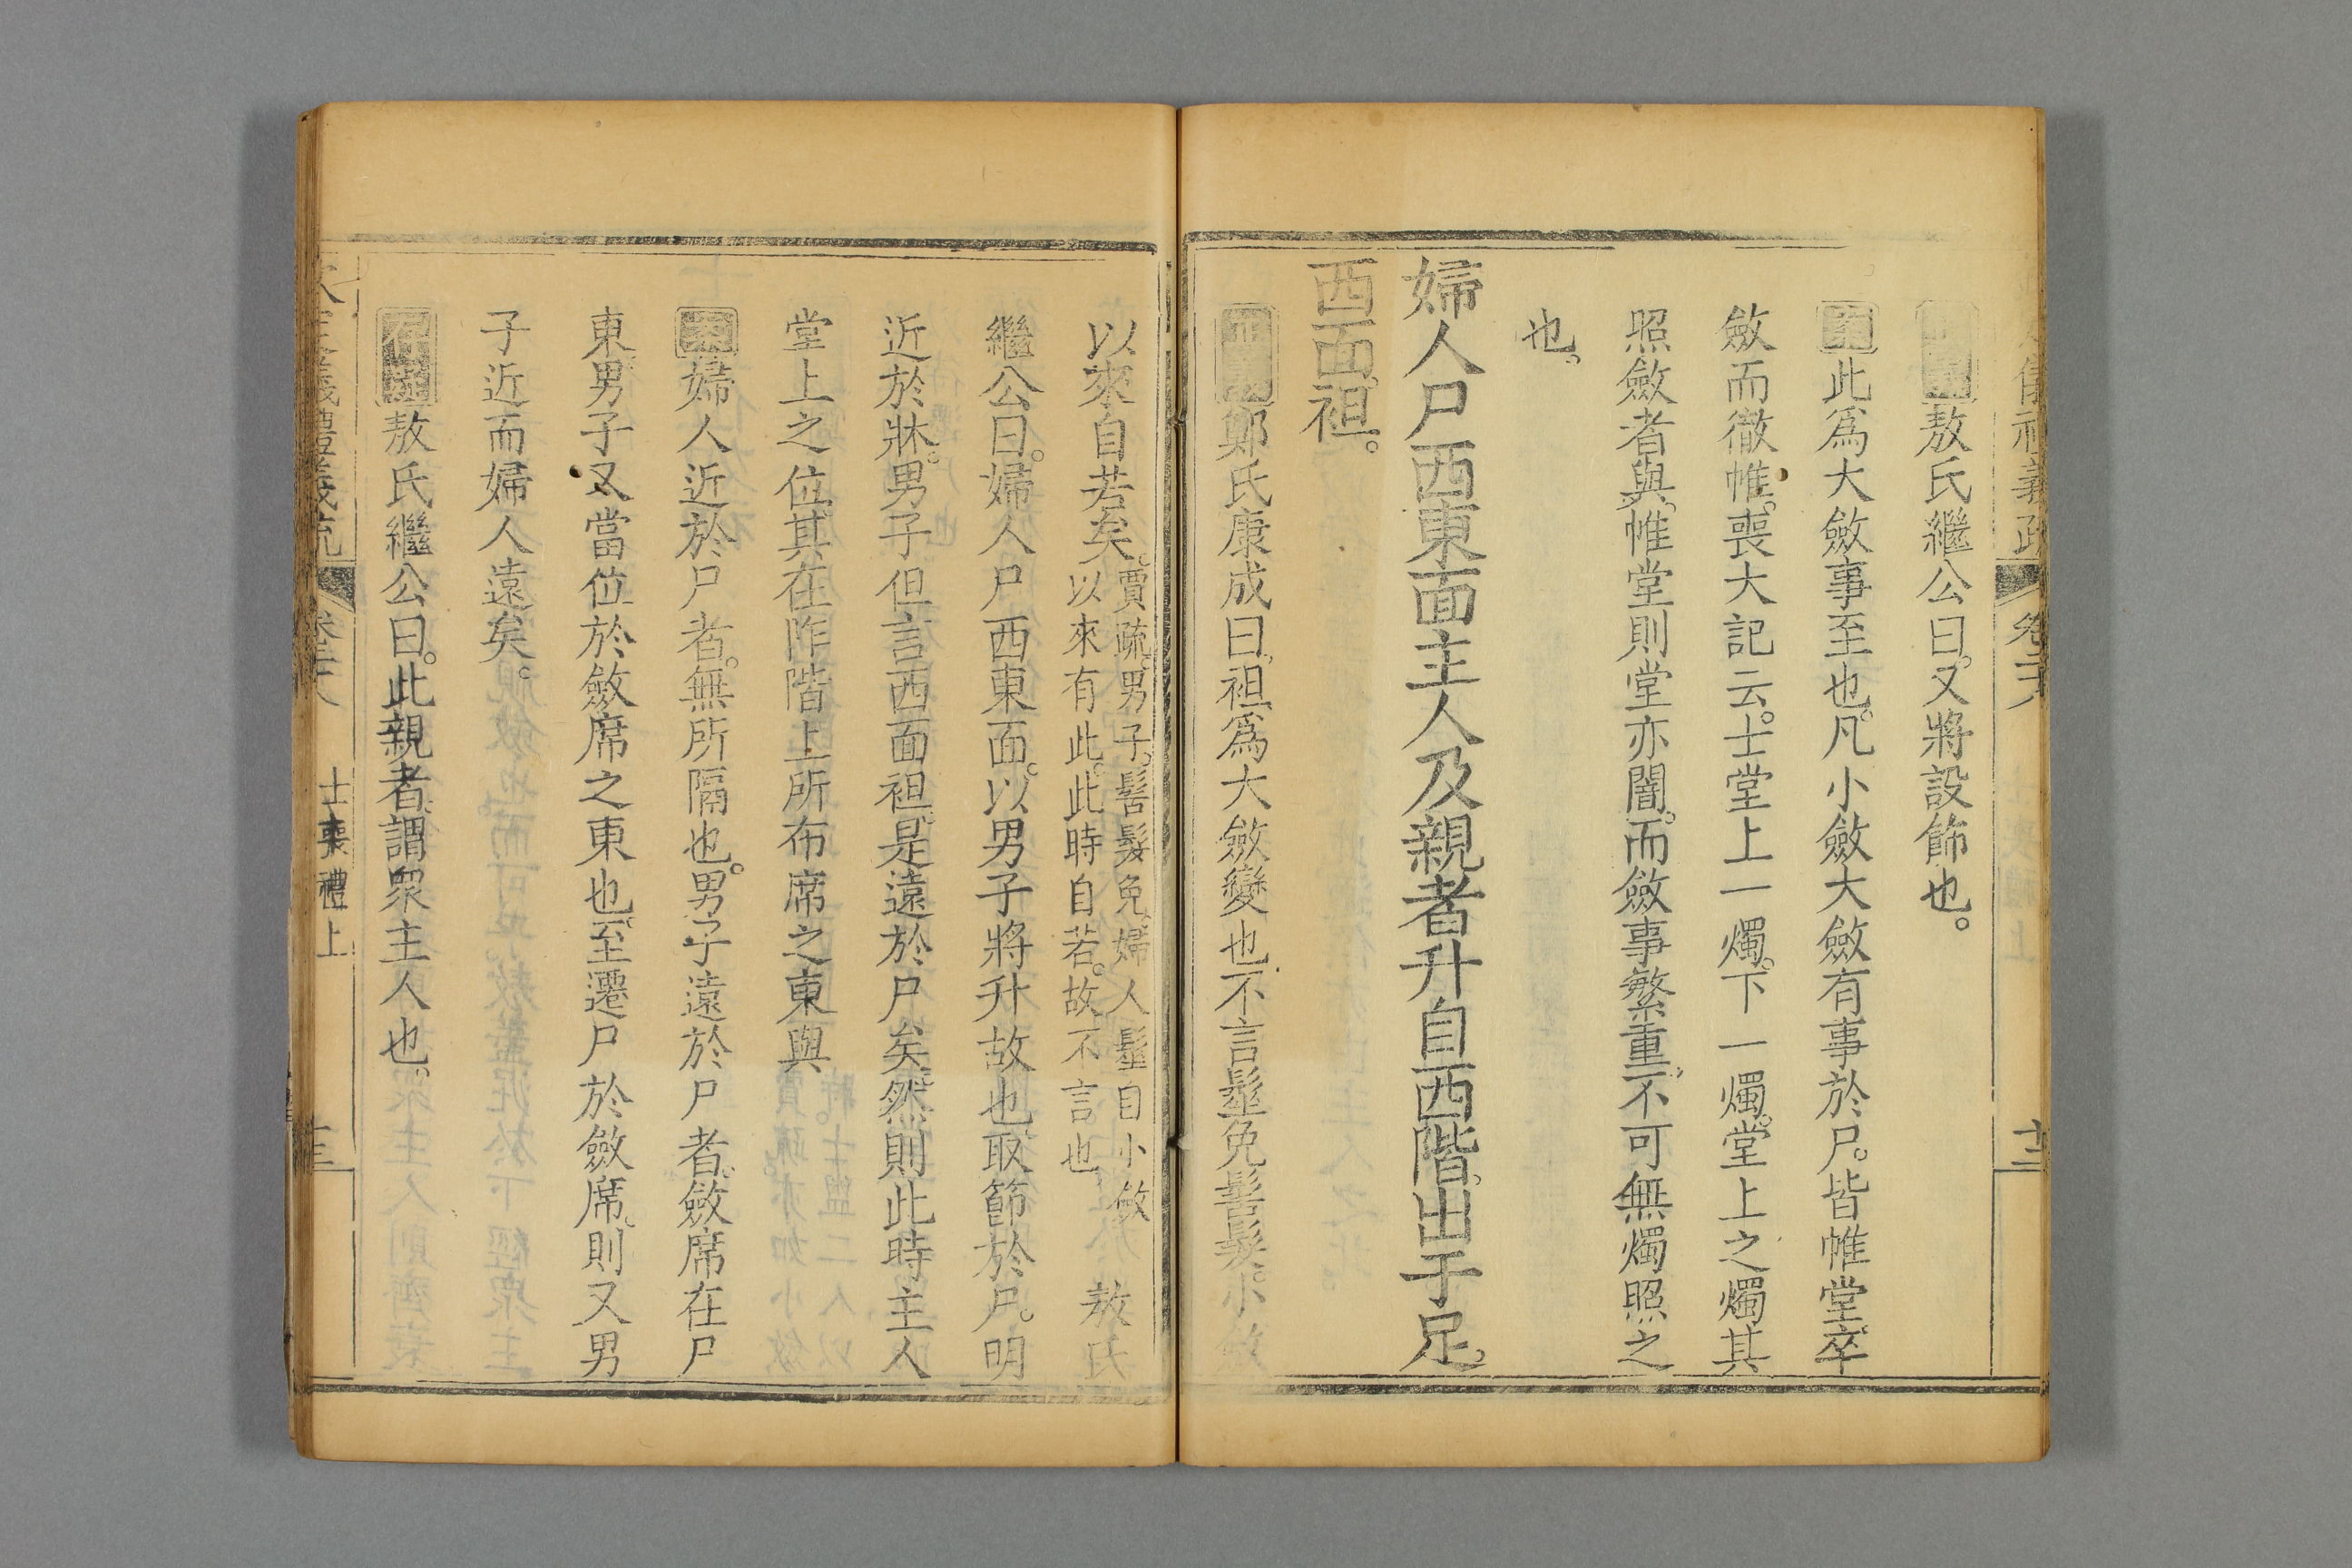 敖氏繼公曰。又將設飾也。
案此爲大斂事至也。凡小斂大斂有事於尸。皆帷堂。卒
斂而徹帷。喪大記云。士堂上一燭。下一燭。堂上之燭。其
照斂者與。帷堂則堂亦闇。而斂事繁重。不可無燭照之
也。
婦人尸西東面。主人及親者升自西階。出于足。
西面袒。
鄭氏康成曰。袒。爲大斂變也。不言髽免髻髮。小斂
以來自若矣。賈疏。男子髻髮免。婦人髽。自小斂
以來有此。此時自若。故不言也 敖氏
繼公曰。婦人尸西東面。以男子將升故也。取節於尸。明
近於牀。男子但言西面袒。是遠於尸矣。然則此時主人
堂上之位。其在阼階上所布席之東與
案婦人近於尸者。無所隔也。男子遠於尸者。斂席在尸
東。男子又當位於斂席之東也。至遷尸於斂席。則又男
子近而婦人遠矣。
存疑敖氏繼公曰。此親者。謂眾主人也。
欽定義禮義疏 卷二十八 士喪禮上 十三